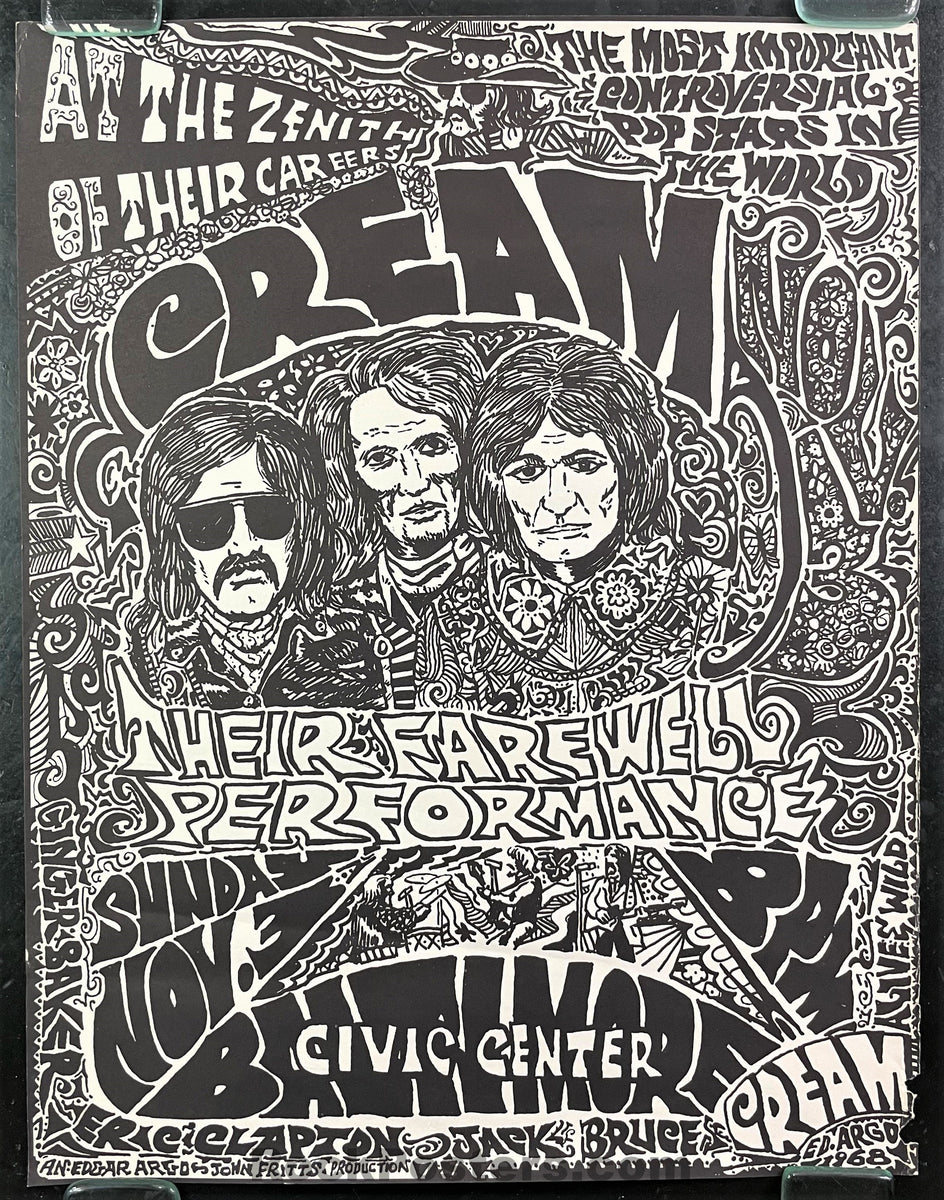 AT THE ZENITH
OF THEIR CAREERS
THE MOST IMPORTANT
CONTROVERSIAL
POP STARS IN
THE WORLD
CREAM
NOV
3
THEIR FAREWELL
PERFORMANCE
SUNDAY
NOV. 3
8 PM
BALTIMORE
CIVIC CENTER
GINGER BAKER
ERIC CLAPTON JACK BRUCE
CREAM
ED. ARGO
1968
AN EDGAR ARGO JOHN FRITTS PRODUCTION